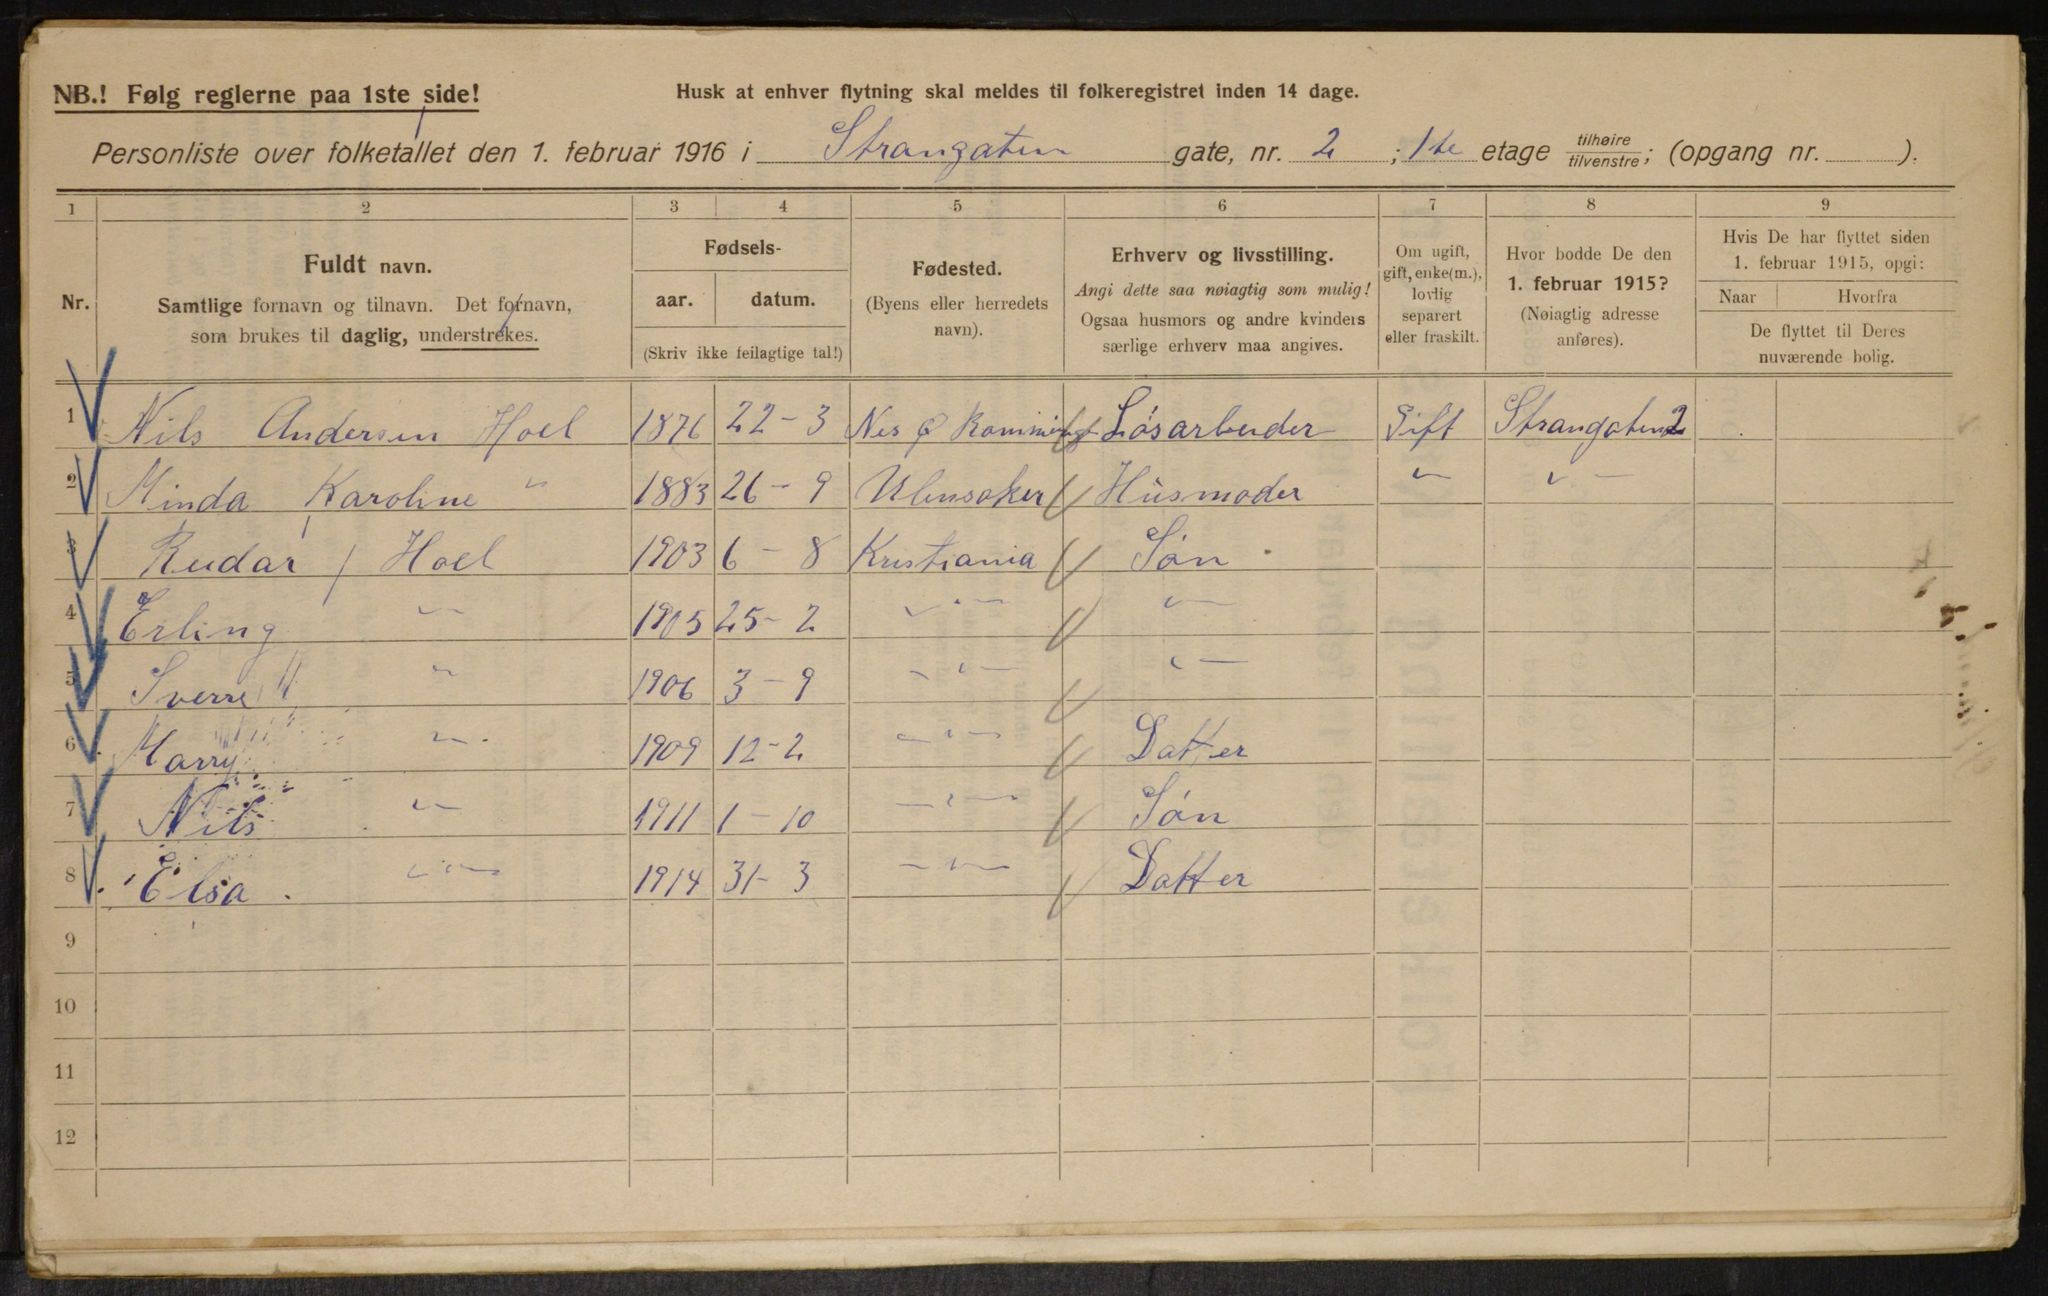 NB.! Følg reglerne paa 1ste side!
Husk at enhver flytning skal meldes til folkeregistret inden 14 dage.
Personliste over folketallet den 1. februar 1916 i Strangaten gate, nr. 2 ; 1ste etage tilhøire tilvenstre; (opgang nr. ).
1 2 3 4 5 6 7 8 9
Nr.
Fuldt navn.
Samtlige fornavn og tilnavn. Det fornavn,
som brukes til daglig, understrekes.
Fødsels-
aar. datum.
(Skriv ikke feilagtige tal!)
Fødested.
(Byens eller herredets
navn).
Erhverv og livsstilling.
Angi dette saa nøiagtig som mulig!
Ogsaa husmors og andre kvinders
særlige erhverv maa angives.
Om ugift,
gift, enke(m.),
lovlig
separert
eller fraskilt.
Hvor bodde De den
1. februar 1915?
(Nøiagtig adresse
anføres).
Hvis De har flyttet siden
1. februar 1915, opgi:
Naar Hvorfra
De flyttet til Deres
nuværende bolig.
1 Nils Andersen Hoel 1876 22-3 Nes Løsarbeider Gift Strangaten 2
2 Minda Karoline " 1883 26-9 Ulensaker Husmoder " "
3 Reidar Hoel 1903 6-8 Kristiania Søn
4 Erling " 1905 25-2 " "
5 Sverre " 1906 3-9 " "
6 Harry " 1909 12-2 " Datter
7 Nils " 1911 1-10 " Søn
8 Elsa " 1914 31-3 " Datter
9
10
11
12